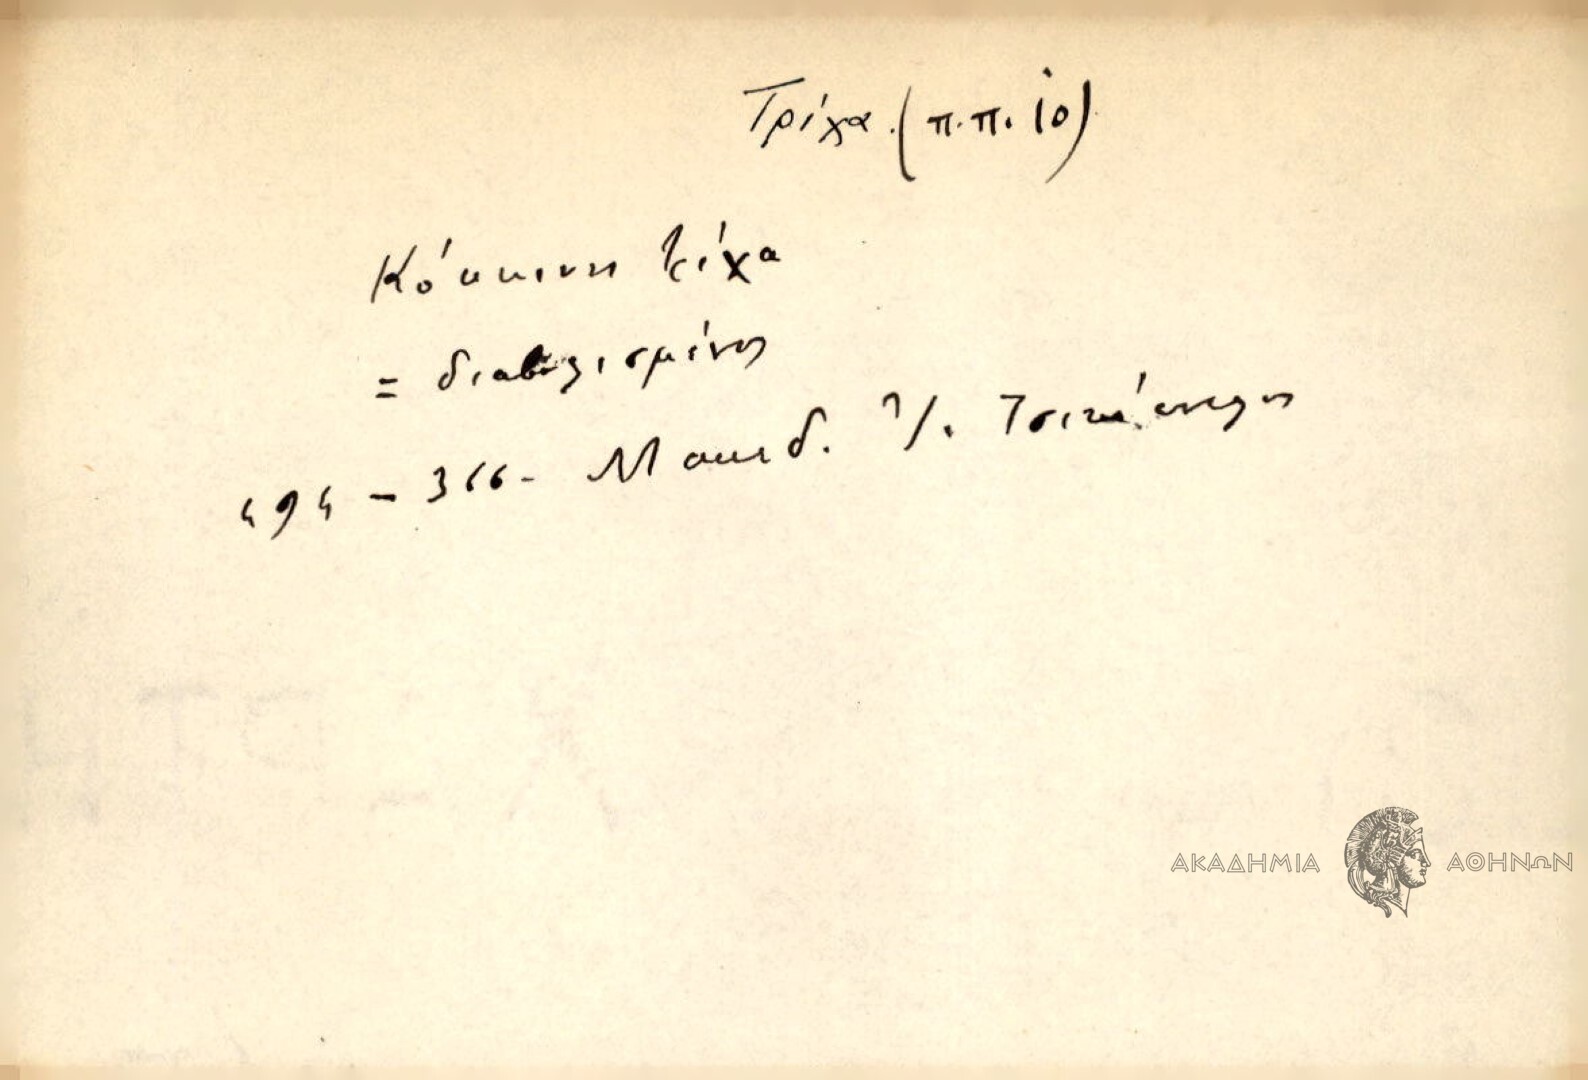 Τρίχα. (π.π. 10)
Κόκκινη τρίχα
= διαβολισμένος
494 - 366 - Μακεδ.
ΑΚΑΔΗΜΙΑ ΑΘΗΝΩΝ